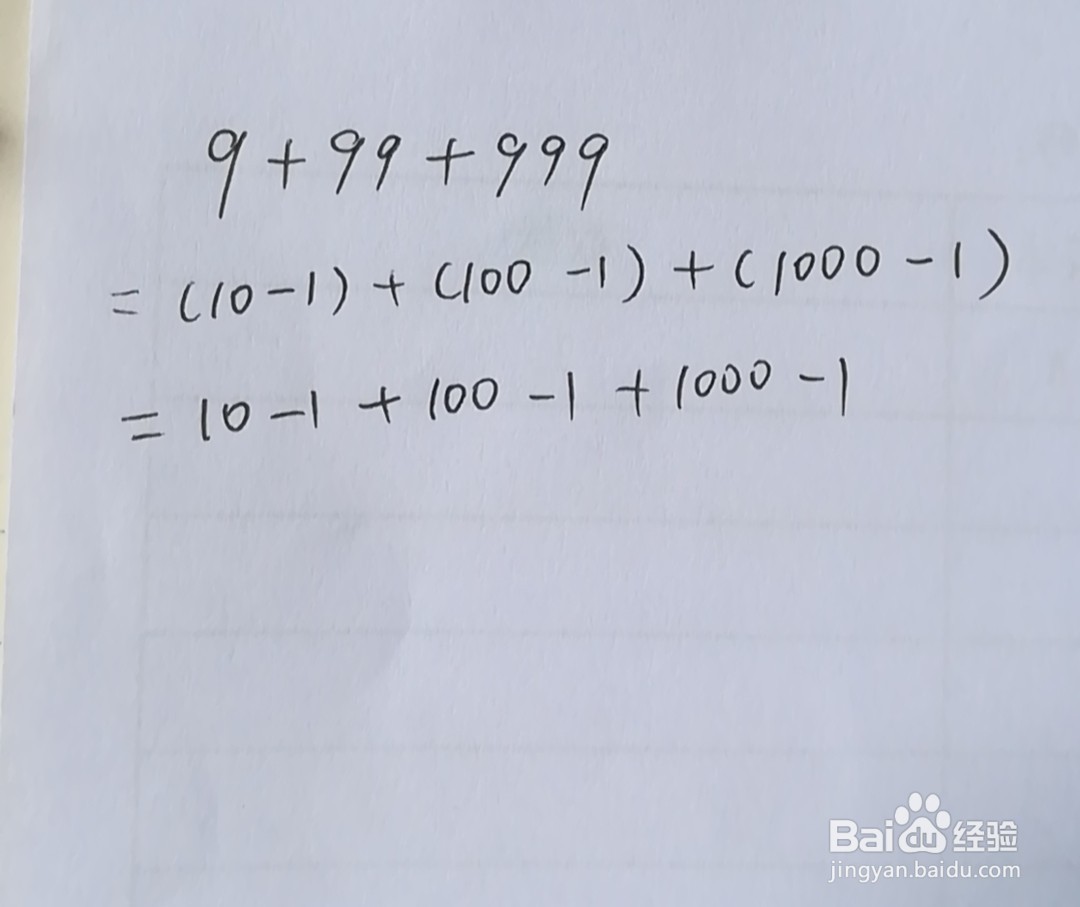 9+99+999
=(10-1)+(100-1)+(1000-1)
=10-1+100-1+1000-1
Baidu经验
jingyan.baidu.com